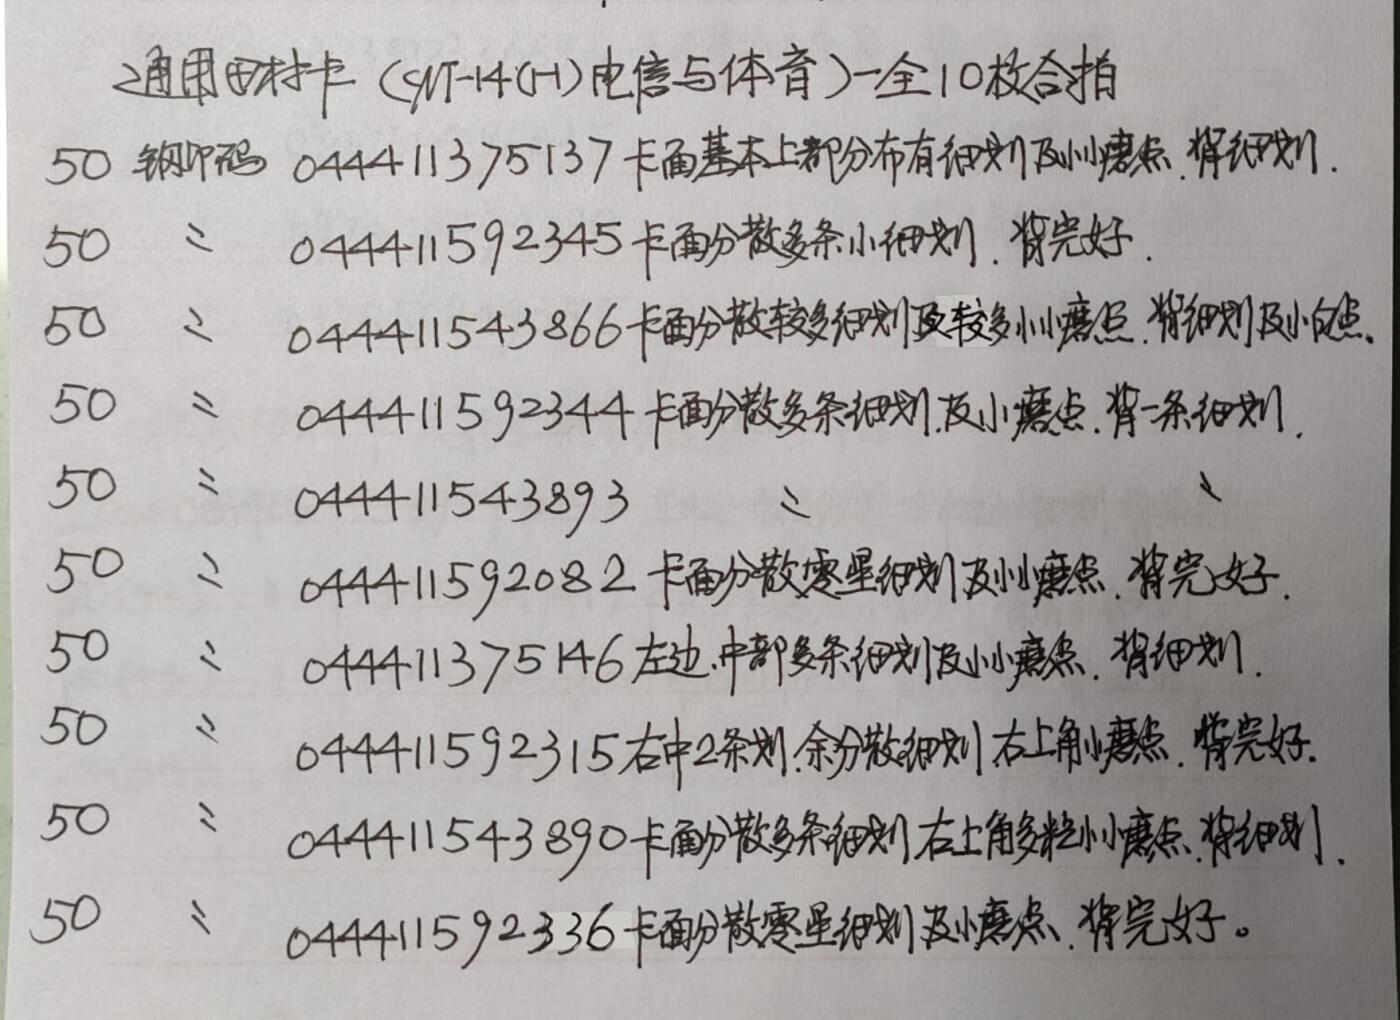 通用田村卡(CNT-14(H)电信与体育)一全10枚合拍
50 钢印码 044411375137卡面基本上都分布有细划及小小磨点.背细划.
50 〃 044411592345卡面分散多条小细划.背完好.
50 〃 044411543866卡面分散较多细划及较多小小磨点.背细划及小白点.
50 〃 044411592344卡面分散多条细划.及小磨点.背一条细划.
50 〃 044411543893 〃 〃
50 〃 044411592082卡面分散零星细划及小小磨点.背完好.
50 〃 044411375146左边.中部多条细划及小小磨点.背细划.
50 〃 044411592315右中2条划.余分散细划右上角小磨点.背完好.
50 〃 044411543890卡面分散多条细划右上角多粒小小磨点.背细划.
50 〃 044411592336卡面分散零星细划及小磨点.背完好。